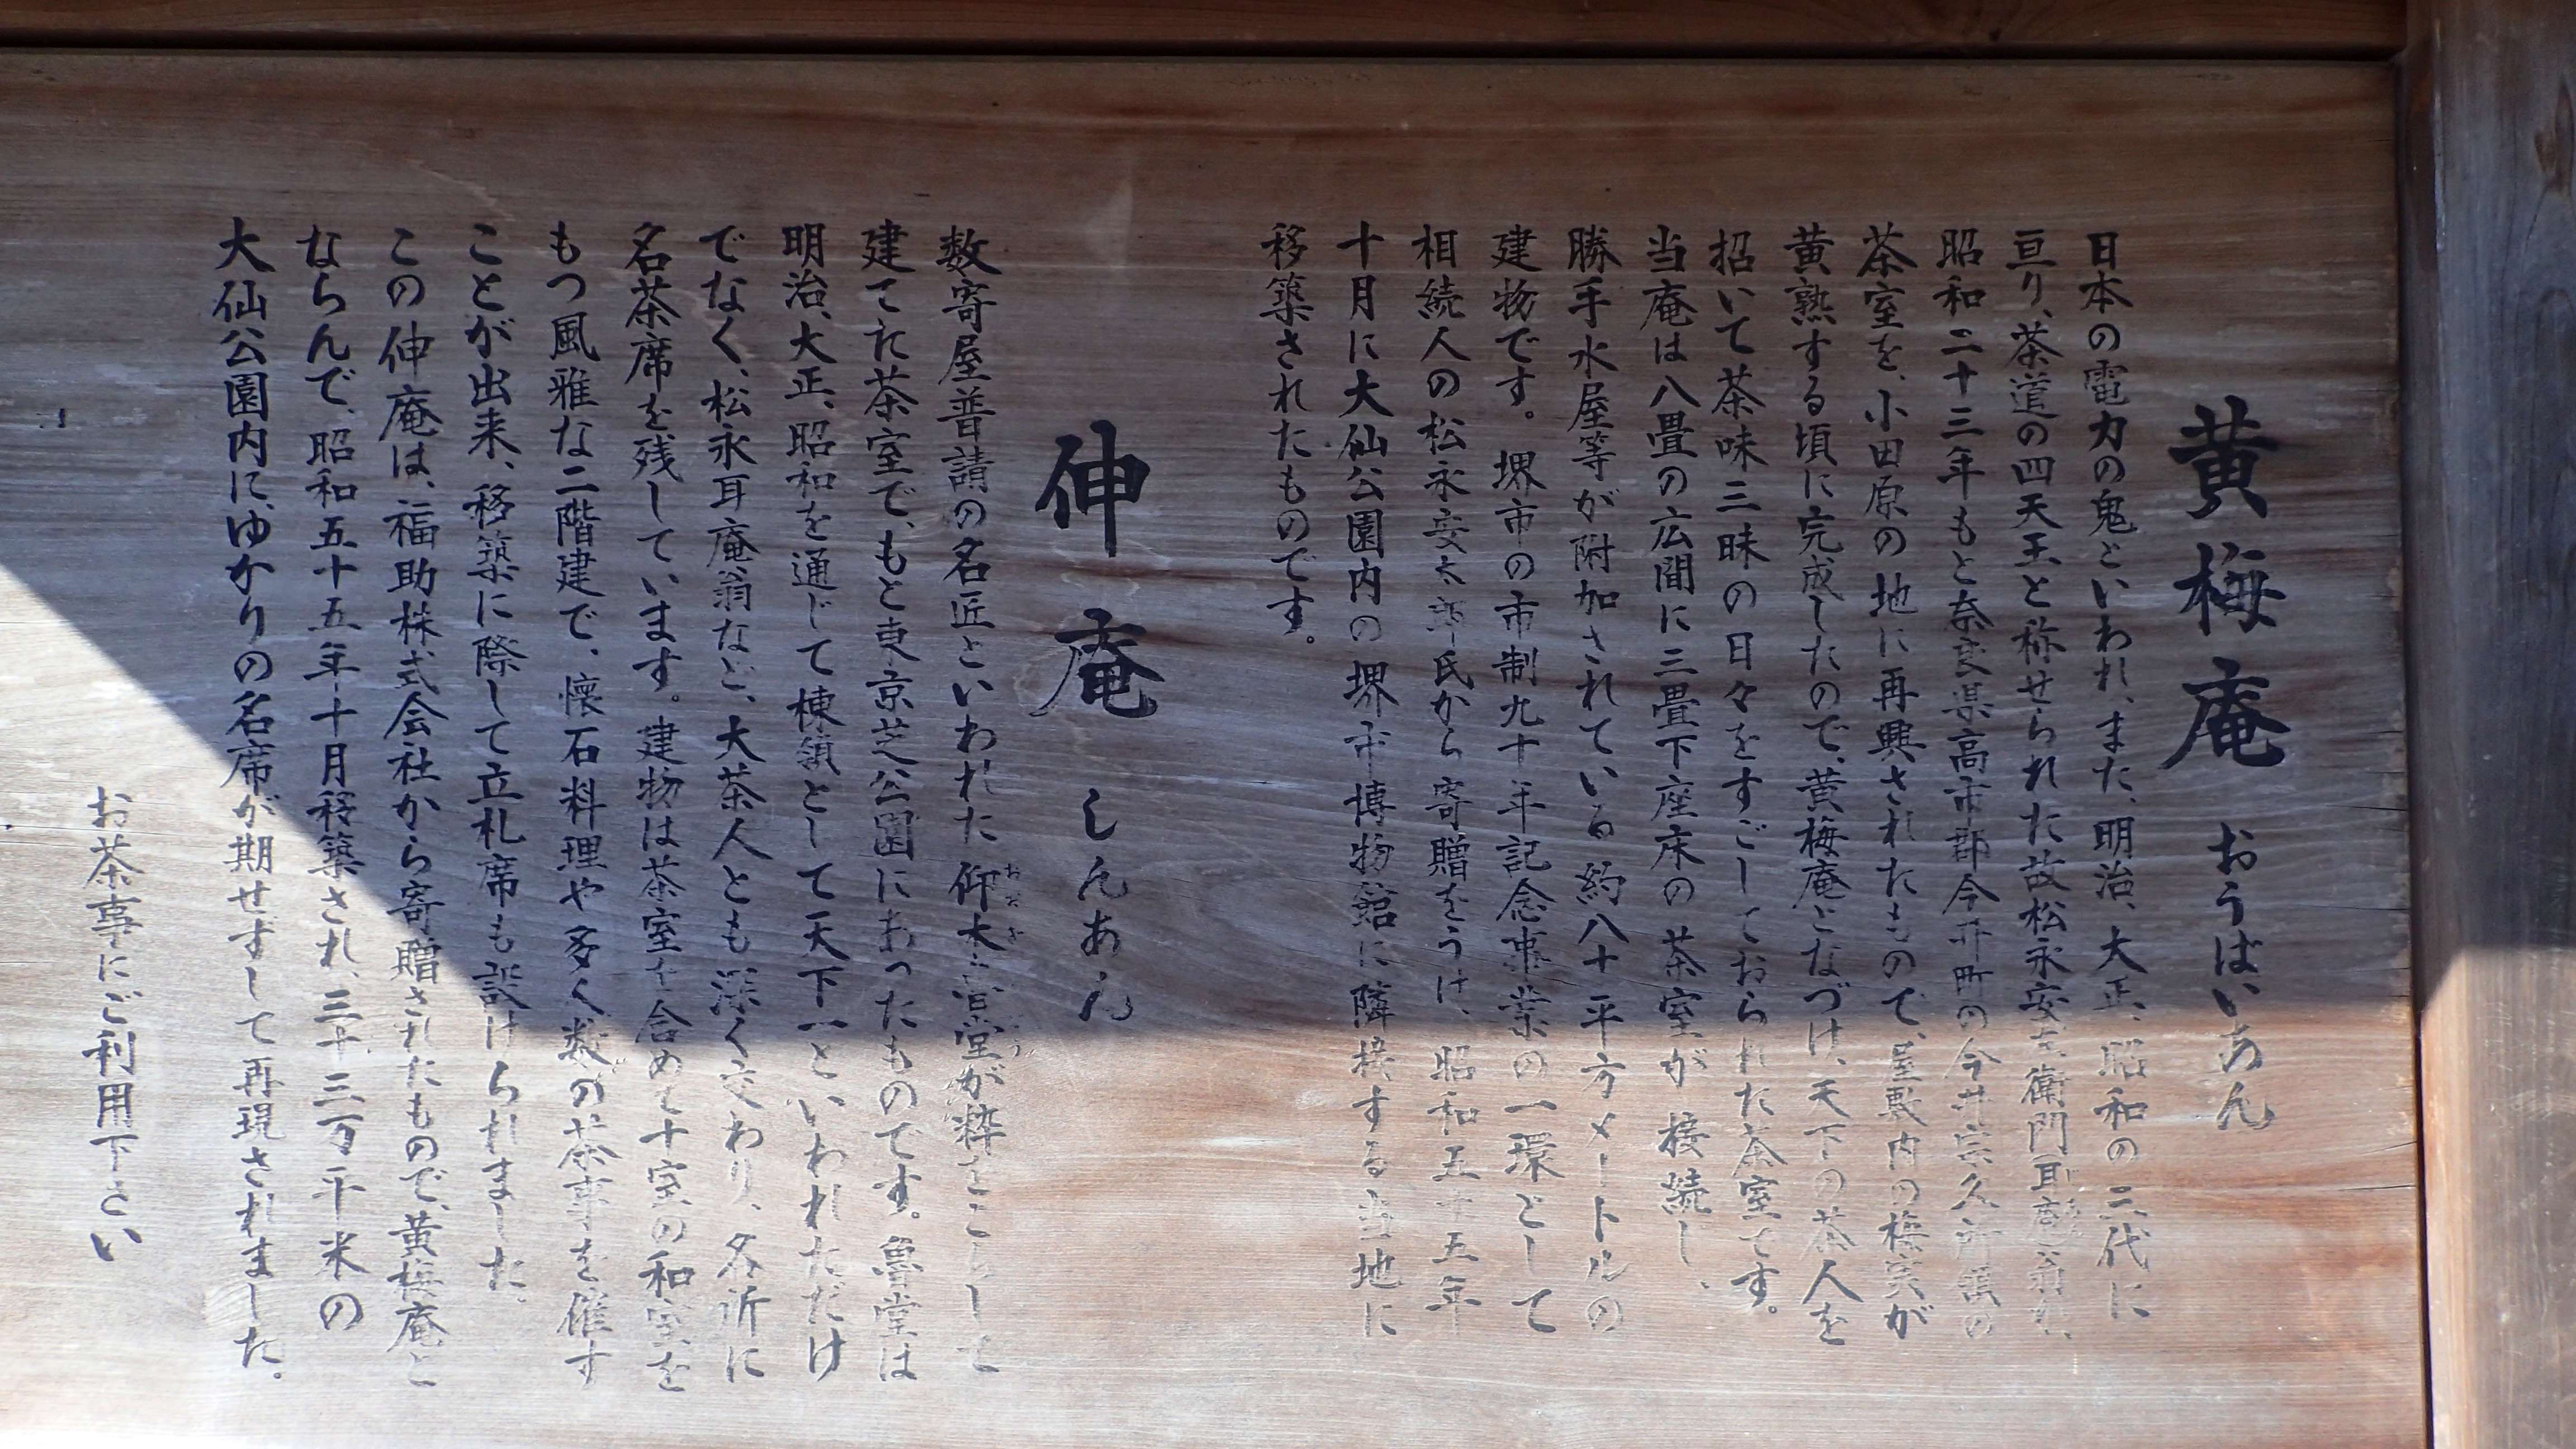 黄梅庵 おうばいあん
日本の電力の鬼といわれ、また、明治、大正、昭和の三代に
亘り、茶道の四天王と称せられた故松永安左衛門耳庵翁が、
昭和二十三年もと奈良県高市郡今井町の今井宗久所縁の
茶室を、小田原の地に再興されたもので、屋敷内の梅実が
黄熟する頃に完成したので、黄梅庵となづけ、天下の茶人を
招いて茶味三昧の日々をすごしておられた茶室です。
当庵は八畳の広間に三畳下座床の茶室が接続し、
勝手水屋等が附加されている約八十平方メートルの
建物です。堺市の市制九十年記念事業の一環として
相続人の松永安太郎氏から寄贈をうけ、昭和五十五年
十月に大仙公園内の堺市博物館に隣接する当地に
移築されたものです。
伸庵 しんあん
数寄屋普請の名匠といわれた仰木魯堂が粋をこらして
建てた茶室で、もと東京芝公園にあったものです。魯堂は
明治、大正、昭和を通じて棟領として天下一といわれただけ
でなく、松永耳庵翁など、大茶人とも深く交わり、各所に
名茶席を残しています。建物は茶室を含めて十室の和室を
もつ風雅な二階建で、懐石料理や多人数の茶事を催す
ことが出来、移築に際して立礼席も設けられました。
この伸庵は、福助株式会社から寄贈されたもので、黄梅庵と
ならんで、昭和五十五年十月移築され、三十三万平米の
大仙公園内に、ゆかりの名席が期せずして再現されました。
お茶事にご利用下さい